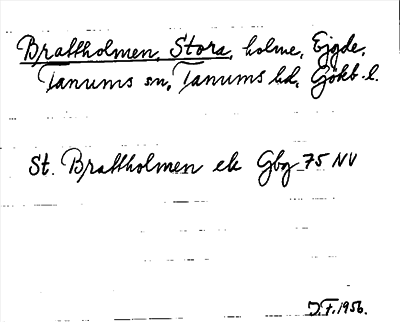 Brattholmen, Stora, holme, Ejgde,
Tanums sn, Tanums hd, Gökb. l.
St. Brattholmen ek Gbg 75 NV
J.F. 1956.